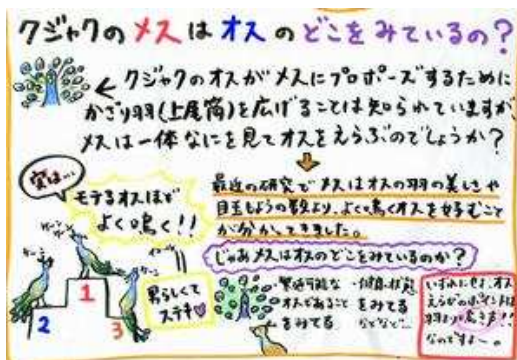 クジャクのメスはオスのどこをみているの?
← クジャクのオスがメスにプロポーズするために
かざり羽(上尾筒)を広げることは知られていますが、
メスは一体なにを見てオスをえらぶのでしょうか?
実は…
モテるオスほど
よく鳴く!!
最近の研究でメスはオスの羽の美しさや
目玉もようの数より、よく鳴くオスを好むこと
が分かってきました。
じゃあメスはオスのどこをみているのか?
1
2
3
男らしくて
ステキ♡
繁殖可能な
オスであること
をみてる
・健康状態
をみてる
などなど…
いずれにせよ、オス
えらびのポイントは
羽より鳴き声!!
なのですよー。